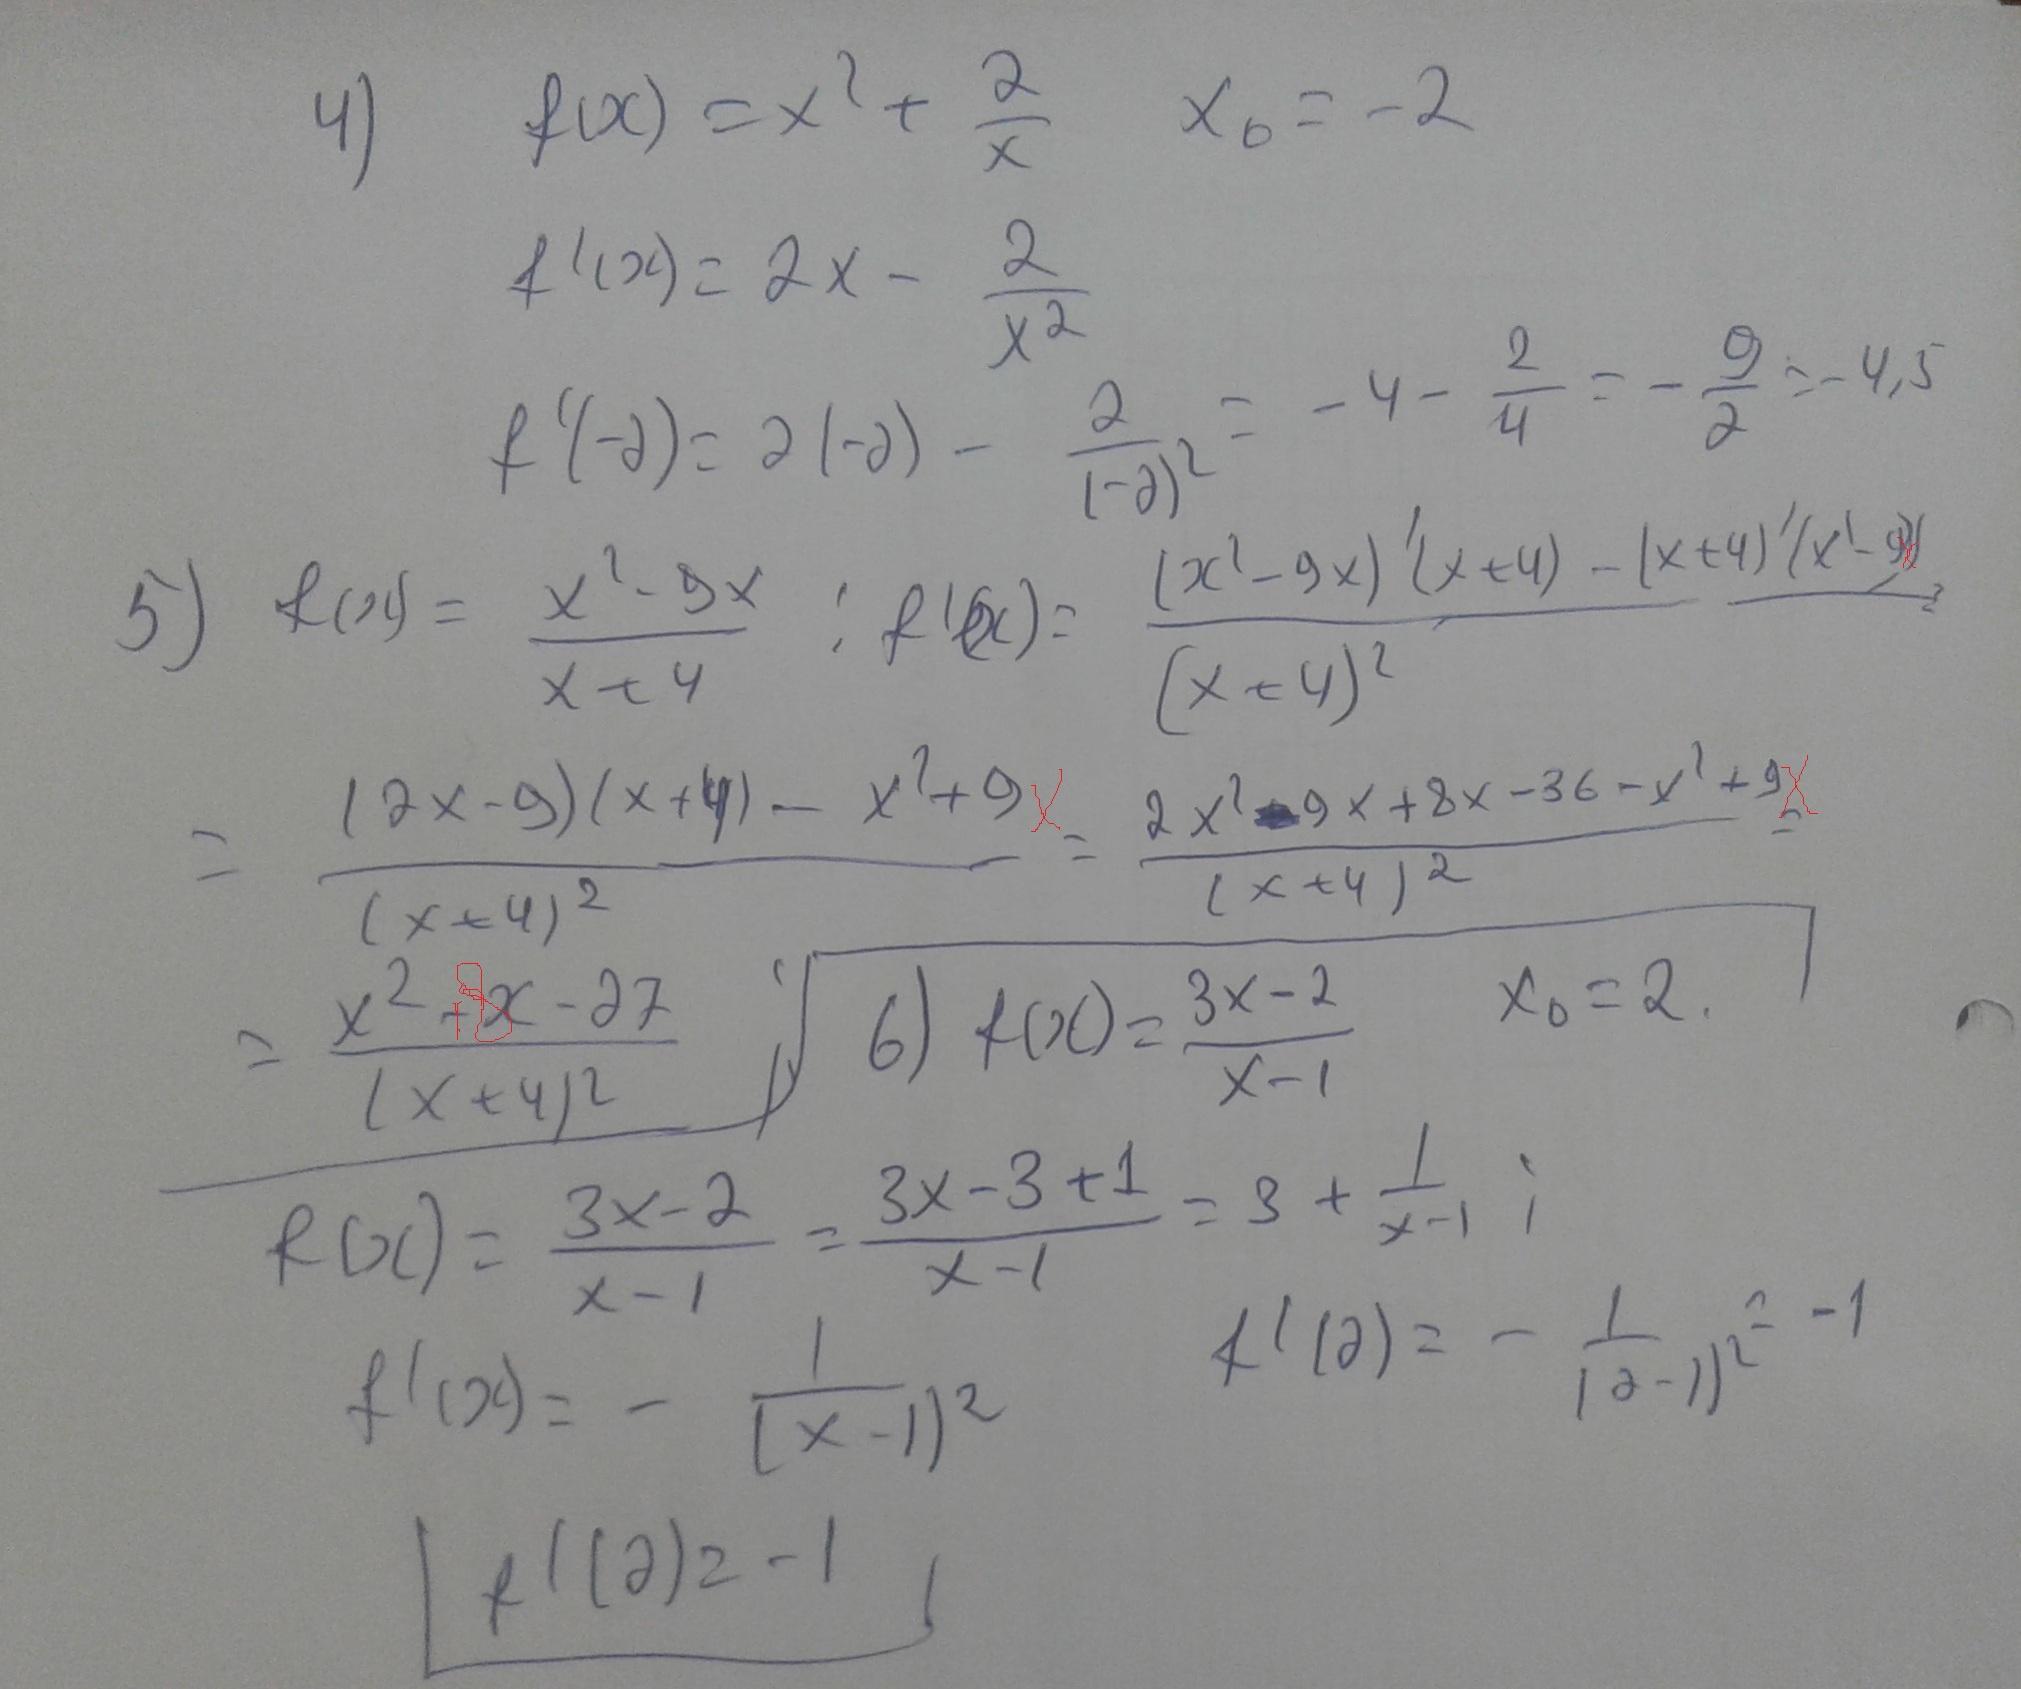 4) f(x) = x² + 2/x x₀ = -2
f'(x) = 2x - 2/x²
f'(-2) = 2(-2) - 2/(-2)² = -4 - 2/4 = -9/2 = -4,5
5) f(x) = (x²-9x)/(x+4) ; f'(x) = ((x²-9x)'(x+4) - (x+4)'(x²-9x))/(x+4)² =
= ((2x-9)(x+4) - x²+9x)/(x+4)² = (2x²-9x+8x-36-x²+9x)/(x+4)² =
= (x²+8x-27)/(x+4)² ;
6) f(x) = (3x-2)/(x-1) x₀ = 2.
f(x) = (3x-2)/(x-1) = (3x-3+1)/(x-1) = 3 + 1/(x-1) ;
f'(x) = - 1/(x-1)² f'(2) = - 1/(2-1)² = -1
f'(2) = -1